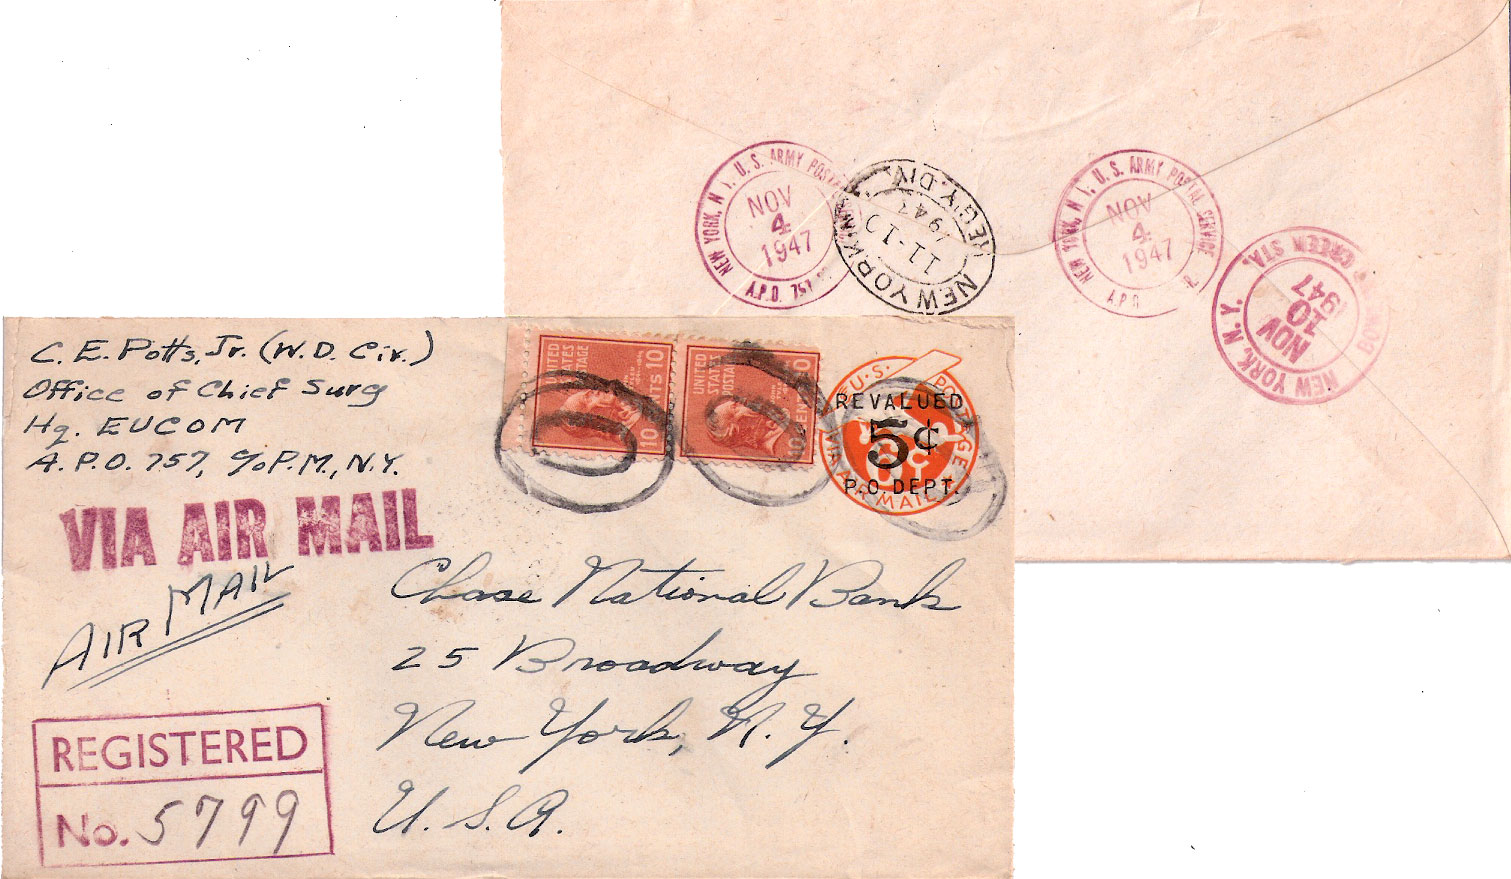 NEW YORK, N.Y. U.S. ARMY POSTAL
NOV
4
1947
A.P.O. 757
NEW YORK
11-10
REG'Y. DIV.
NEW YORK, N.Y. U.S. ARMY POSTAL SERVICE
NOV
4
1947
A.P.O.
NEW YORK, N.Y.
GREEN STA.
NOV
10
1947
C. E. Potts, Jr. (W.D. Civ.)
Office of Chief Surg
Hq. EUCOM
A.P.O. 757, c/o P.M., N.Y.
VIA AIR MAIL
AIR MAIL
UNITED
STATES
POSTAGE
10
CENTS 10
UNITED
STATES
POSTAGE
10
CENTS 10
U.S. POSTAGE
REVALUED
5¢
P.O. DEPT.
VIA AIR MAIL
Chase National Bank
25 Broadway
New York, N.Y.
U.S.A.
REGISTERED
No. 5799